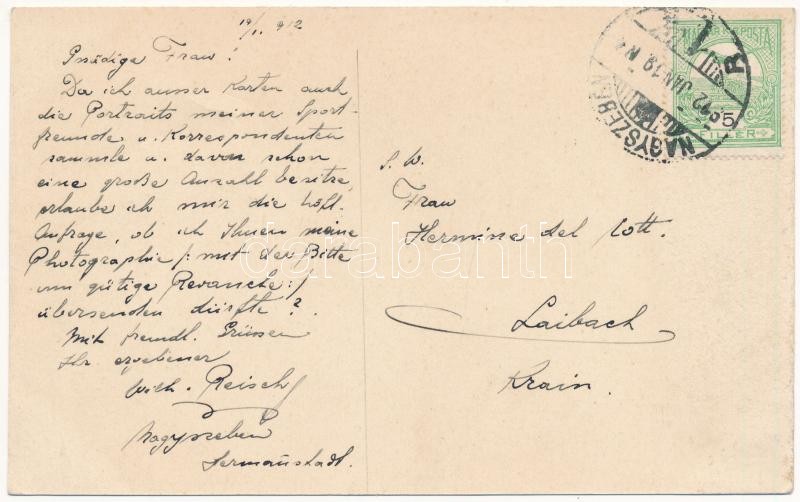 19/1. 912
Gnädige Frau!
Da ich ausser Karten auch
die Portraits meiner Sport-
freunde u. Korrespondenten
sammle u. davon schon
eine große Anzahl besitze,
erlaube ich mir die höfl.
Anfrage, ob ich Ihnen meine
Photographie /: mit der Bitte
um gütige Revanche :/
übersenden dürfte?
Mit freundl. Grüssen
Ihr ergebener
Wilh. Reisch
Nagyszeben
Hermannstadt.
S. W.
Frau
Hermine del Cott.
Laibach
Krain.
MAGYAR KIR. POSTA
5
FILLÉR
NAGYSZEBEN
912 JAN 19
darabanth